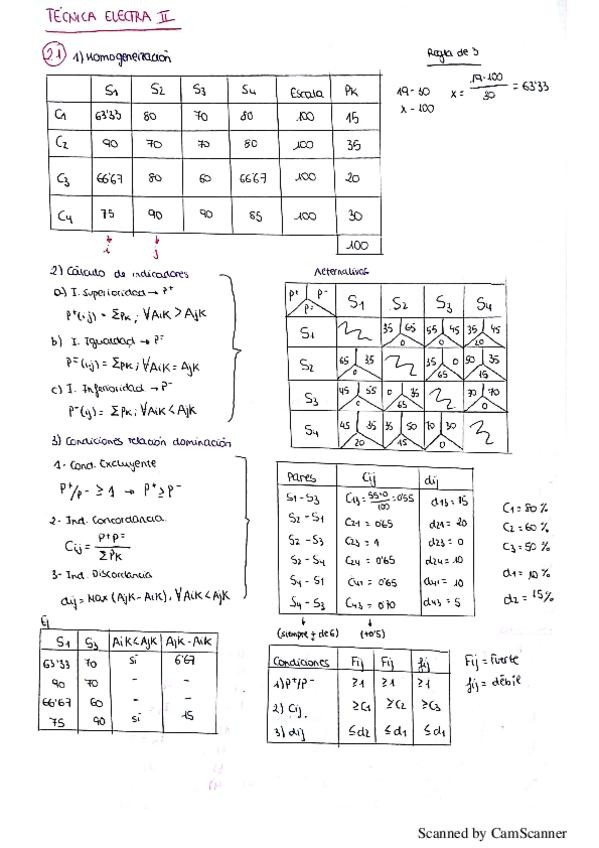 TÉCNICA ELECTRA II
2.1 1) Homogeneización
Regla de 3
19 - 30
x - 100
x = 19·100 / 30 = 63'33
S1 S2 S3 S4 Escala PK
C1 63'33 80 70 80 100 15
C2 90 70 70 80 100 35
C3 66'67 80 60 66'67 100 20
C4 75 90 90 85 100 30
100
i j
2) Cálculo de indicadores
a) I. Superioridad → P+
P+(i,j) = ΣPK; ∀AiK > AjK
b) I. Igualdad → P=
P=(i,j) = ΣPK; ∀AiK = AjK
c) I. Inferioridad → P-
P-(ij) = ΣPK; ∀AiK < AjK
Alternativas
P+ P- P= S1 S2 S3 S4
S1 35 65 0 55 45 0 35 45 20
S2 65 35 0 35 0 65 50 35 15
S3 45 55 0 0 35 65 30 70 0
S4 45 35 20 35 50 15 70 30 0
3) Condiciones relación dominación
1- Cond. Excluyente
P+/P- ≥ 1 → P+ ≥ P-
2- Ind. Concordancia
Cij = P+P= / ΣPK
3- Ind. Discordancia
dij = Max (AjK - AiK), ∀AiK < AjK
Pares Cij dij
S1 - S3 C13 = 55+0/100 = 0'55 d13 = 15
S2 - S1 C21 = 0'65 d21 = 20
S2 - S3 C23 = 1 d23 = 0
S2 - S4 C24 = 0'65 d24 = 10
S4 - S1 C41 = 0'65 d41 = 10
S4 - S3 C43 = 0'70 d43 = 5
(siempre + de 6) (+0'5)
C1 = 80%
C2 = 60%
C3 = 50%
d1 = 10%
d2 = 15%
Ej
S1 S3 AiK<AjK AjK - AiK
63'33 70 si 6'67
90 70 - -
66'67 60 - -
75 90 si 15
Condiciones Fij Fij fij
1) P+/P- ≥1 ≥1 ≥1
2) Cij ≥C1 ≥C2 ≥C3
3) dij ≤d2 ≤d1 ≤d1
Fij = Fuerte
fij = débil
Scanned by CamScanner